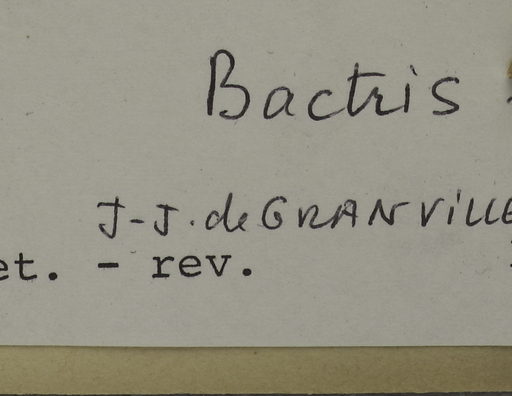 Bactris
J-J. de GRANVILLE
et. - rev.